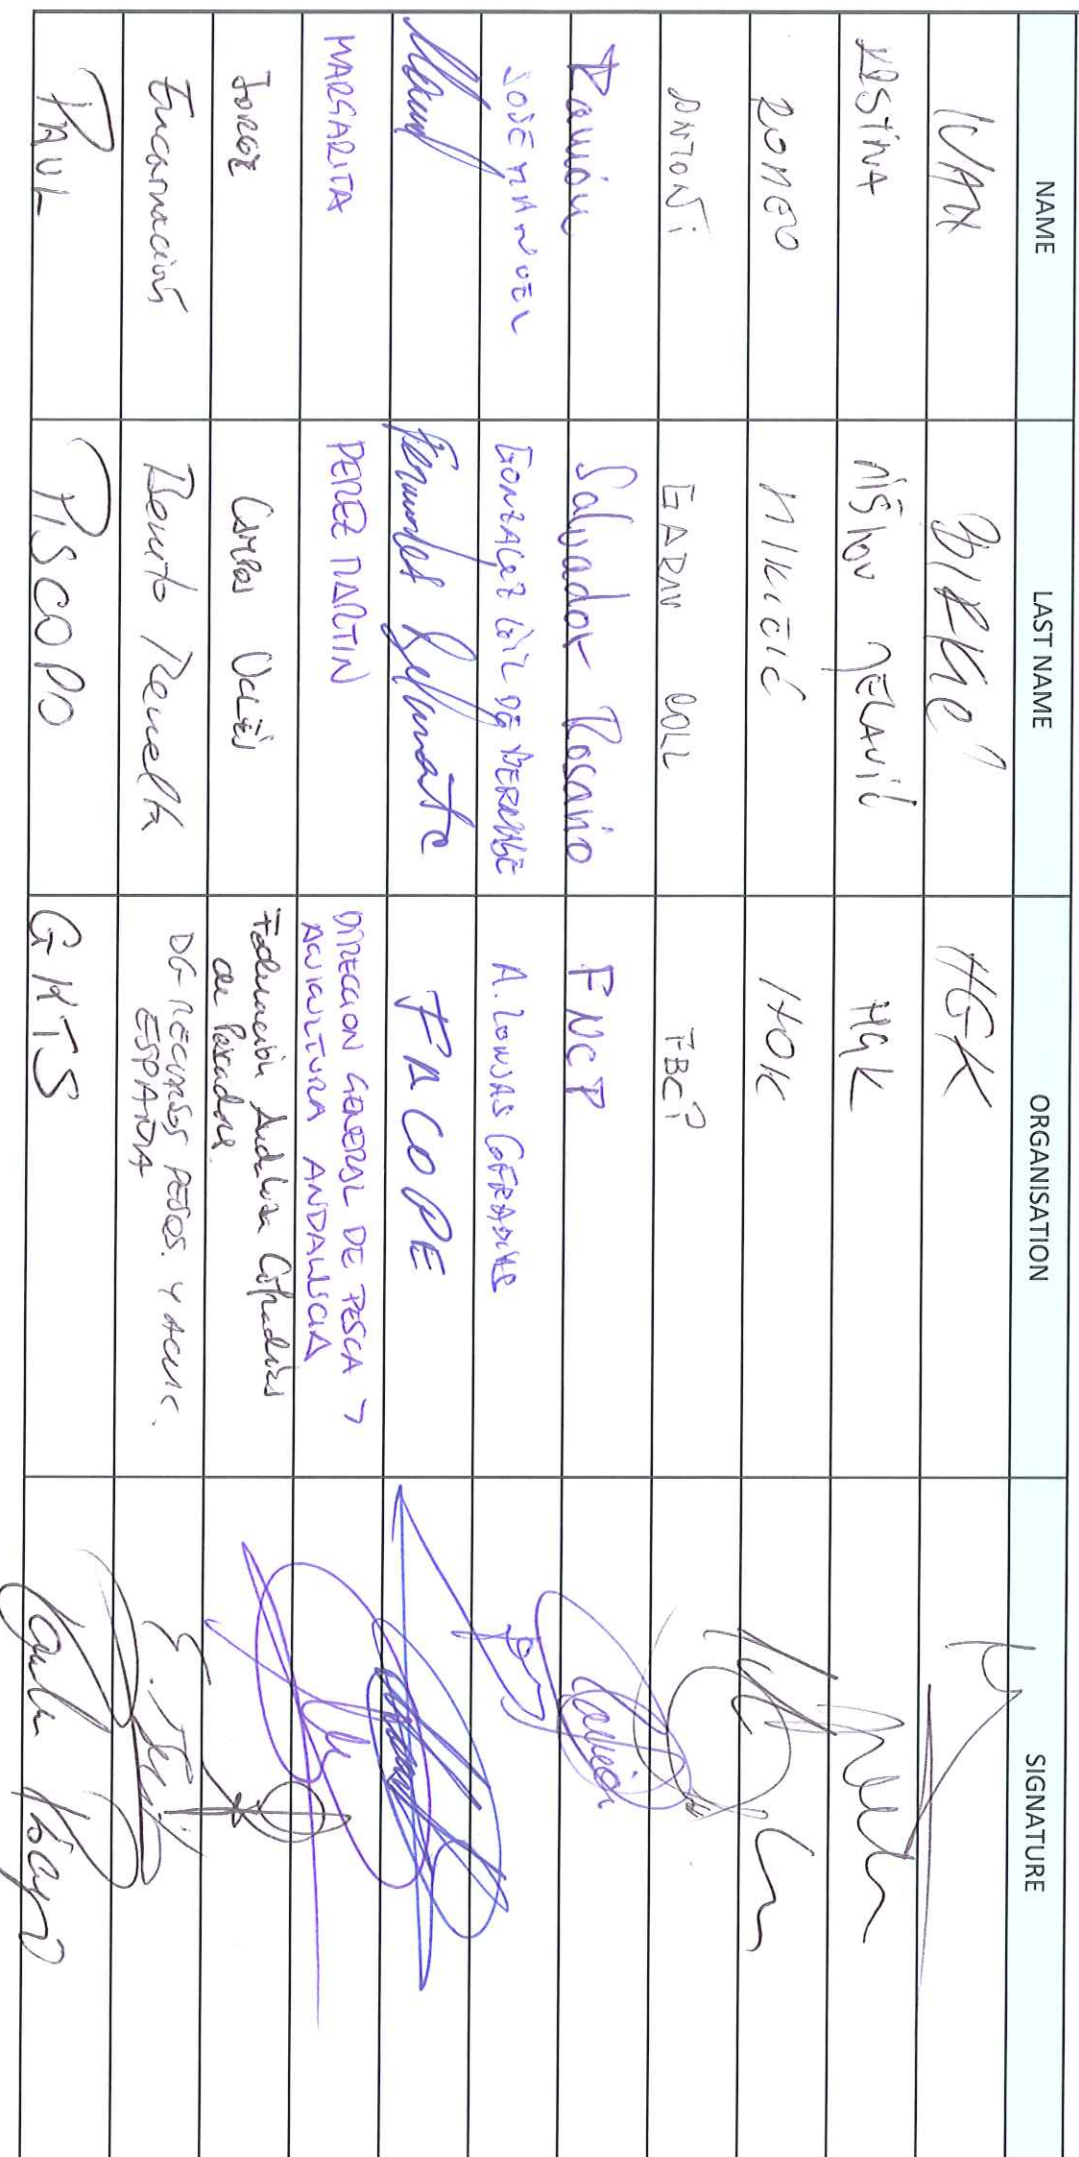 NAME LAST NAME ORGANISATION SIGNATURE
IVAN HGK
KRISTINA MIŠLOV JELAVIĆ HGK
ROMEO MIKIČIĆ HOK
ANTONI GARAU COLL FBCP
Ramón Salvador Rosario FNCP
JOSE MANUEL GONZALEZ GIL DE BERNABE A. LONJAS COFRADIAS
Manuel Fernandez FACOPE
MARGARITA PEREZ MARTIN DIRECCION GENERAL DE PESCA Y
ACUICULTURA ANDALUCIA
JORGE Campos Federación Andaluza Cofradías
de Pescadores
Encarnación Benito Revuelta DG RECURSOS PESQS. Y ACUIC.
ESPAÑA
PAUL PISCOPO GKTS